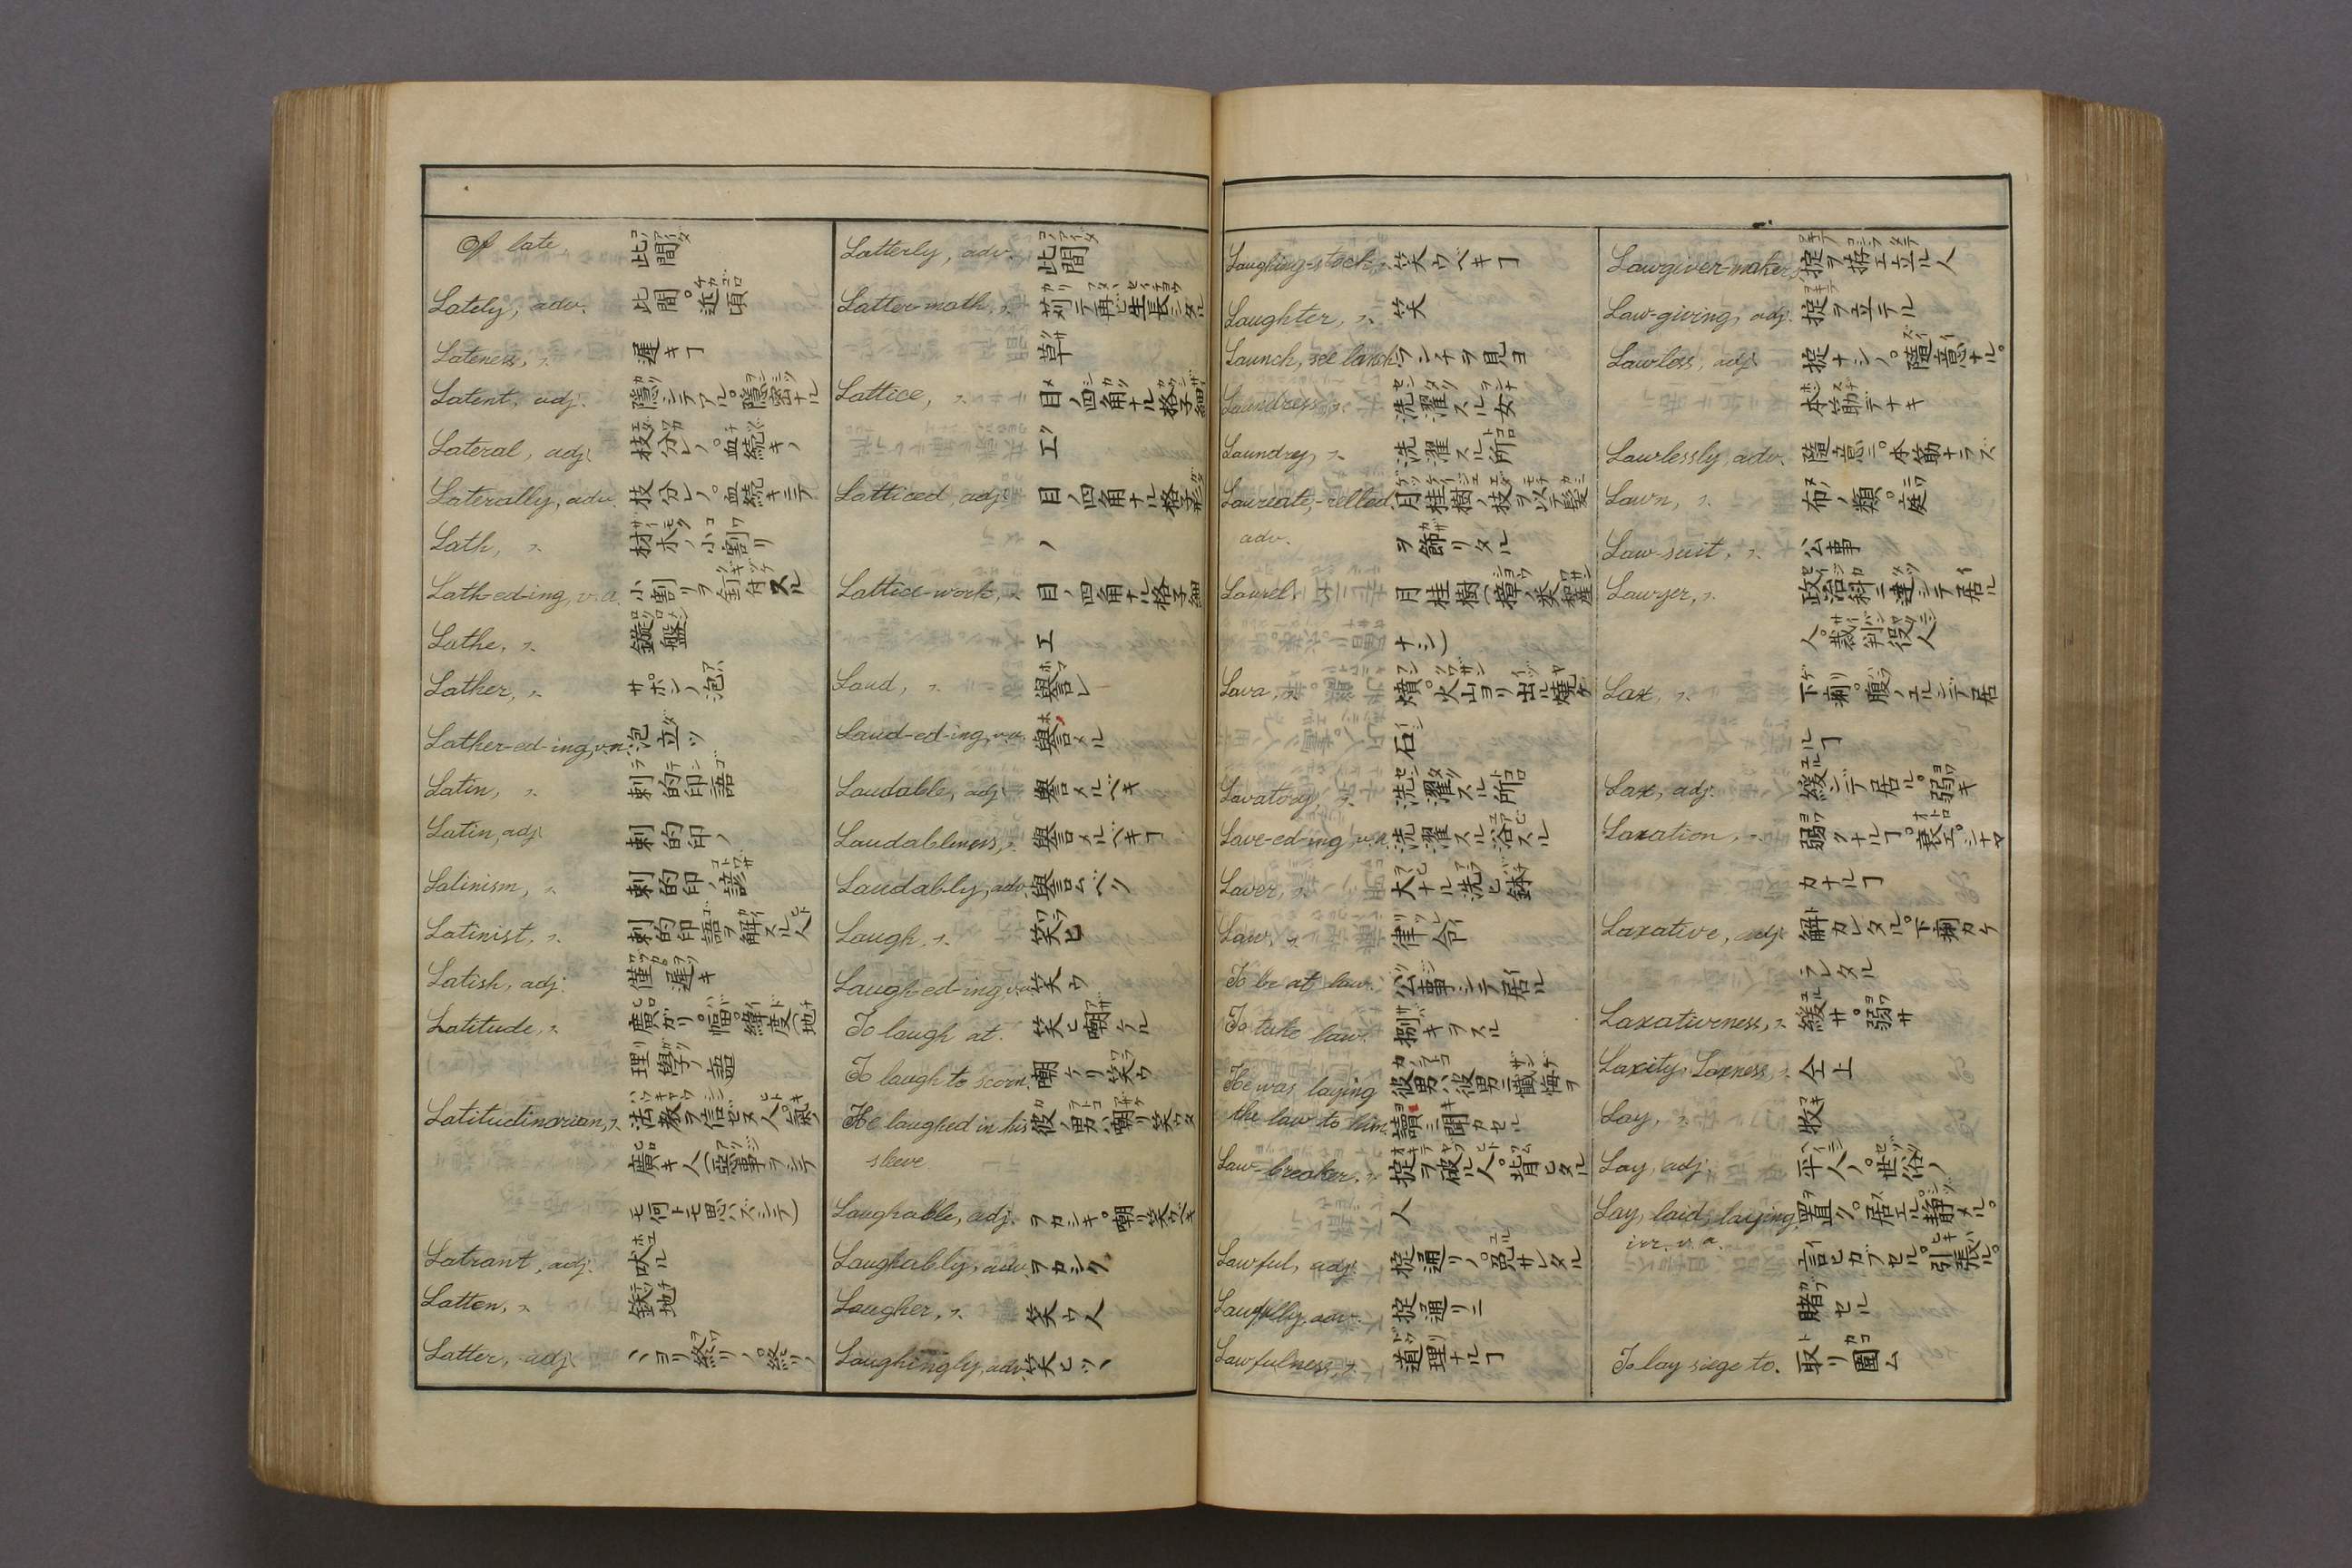 Of late. 此間
Lately, adv. 此間。近頃
Lateness, n. 遅キヿ
Latent, adj. 隱シテアル。隱密ナル
Lateral, adj. 枝分レノ。血続キノ
Laterally, adv. 枝分レノ。血続キニテ
Lath, n. 材木ノ小割リ
Lath-ed-ing, v.a. 小割リヲ釘付スル
Lathe, n. 鏇盤
Lather, n. サボンノ泡
Lather-ed-ing, v.n. 泡立ツ
Latin, n. 剌的印語
Latin, adj. 剌的印ノ
Latinism, n. 剌的印ノ諺
Latinist, n. 剌的印語ヲ解スル人
Latish, adj. 僅カ遅キ
Latitude, n. 廣ガリ。幅。緯度(地
理學ノ語
Latitudinarian, n. 法教ヲ信ゼヌ人。氣ノ
廣キ人(惡事ヲシテ
モ何トモ思ハズシテ)
Latrant, adj. 吠ル
Latten, n. 鉄地
Latter, adj. ヽヨリ終リノ。終リノ
Latterly, adv. 此間
Latter-math, n. 苅テ再ビ生長シタル
草
Lattice, n. 目ノ四角ナル格子細
工
Latticed, adj. 目ノ四角ナル格子形
ノ
Lattice-work, n. 目ノ四角ナル格子細
工
Laud, n. 譽レ
Laud-ed-ing, v.a. 譽メル
Laudable, adj. 譽メルベキ
Laudableness, n. 譽メルベキヿ
Laudably, adv. 譽ムベク
Laugh, n. 笑ヒ
Laugh-ed-ing, v.n. 笑ウ
To laugh at. 笑ヒ嘲ケル
To laugh to scorn. 嘲ケリ笑ウ
He laughed in his 彼ノ男ハ嘲リ笑ウタ
sleeve.
Laughable, adj. ヲカシキ。嘲リ笑ウベキ
Laughably, adv. ヲカシク
Laugher, n. 笑ウ人
Laughingly, adv. 笑ヒツヽ
Laughing-stock, n. 笑ウベキヿ
Laughter, n. 笑
Launch, see lanch ランチヲ見ヨ
Laundress, n. 洗濯スル女
Laundry, n. 洗濯スル所
Laureate,-relled, 月桂樹ノ枝ヲ以テ髪
adv. ヲ飾リタル
Laurel 月桂樹(樟ノ类和産
ナシ)
Lava, n. 燌。火山ヨリ出ル燒ケ
石
Lavatory, n. 洗濯スル所
Lave-ed-ing, v.a. 洗濯スル浴スル
Laver, n. 大ナル洗ヒ鉢
Law, n. 律令
To be at law. 公事シテ居ル
To take law. 捌キヲスル
He was laying 彼男ハ彼男ニ懺悔ヲ
the law to him. 讀ミ聞カセル
Law-breaker, n. 掟ヲ破ル人。背ヒタル
人
Lawful, adj. 掟通リノ。免サレタル
Lawfully, adv. 掟通リニ
Lawfulness, n. 道理ナルヿ
Lawgiver-maker, 掟ヲ拵エ立ル人
Law-giving, adj. 掟ヲ立テル
Lawless, adj. 掟ナシノ。隨意ナル。
本筋デナキ
Lawlessly, adv. 隨意ニ。本筋ナラズ
Lawn, n. 布ノ類。庭
Law-suit, n. 公事
Lawyer, n. 政治科ニ達シテ居ル
人。裁判役人
Lax, n. 下痢。腹ノユルンデ居
ルヿ
Lax, adj. 緩ンデ居ル。弱キ
Laxation, n. 弱クナルヿ。衰エ。シナヤ
カナルヿ
Laxative, adj. 解カレタル。下痢カケ
ラレタル
Laxativeness, n. 緩サ。弱サ
Laxity, Laxness, n. 仝上
Lay, n. 牧
Lay, adj. 平人ノ。世俗ノ
Lay, laid, laying, 置ク。居エル。静メル。
irr. v. a. 言ヒカブセル。引張ル。
賭セル
To lay siege to. 取リ圍ム